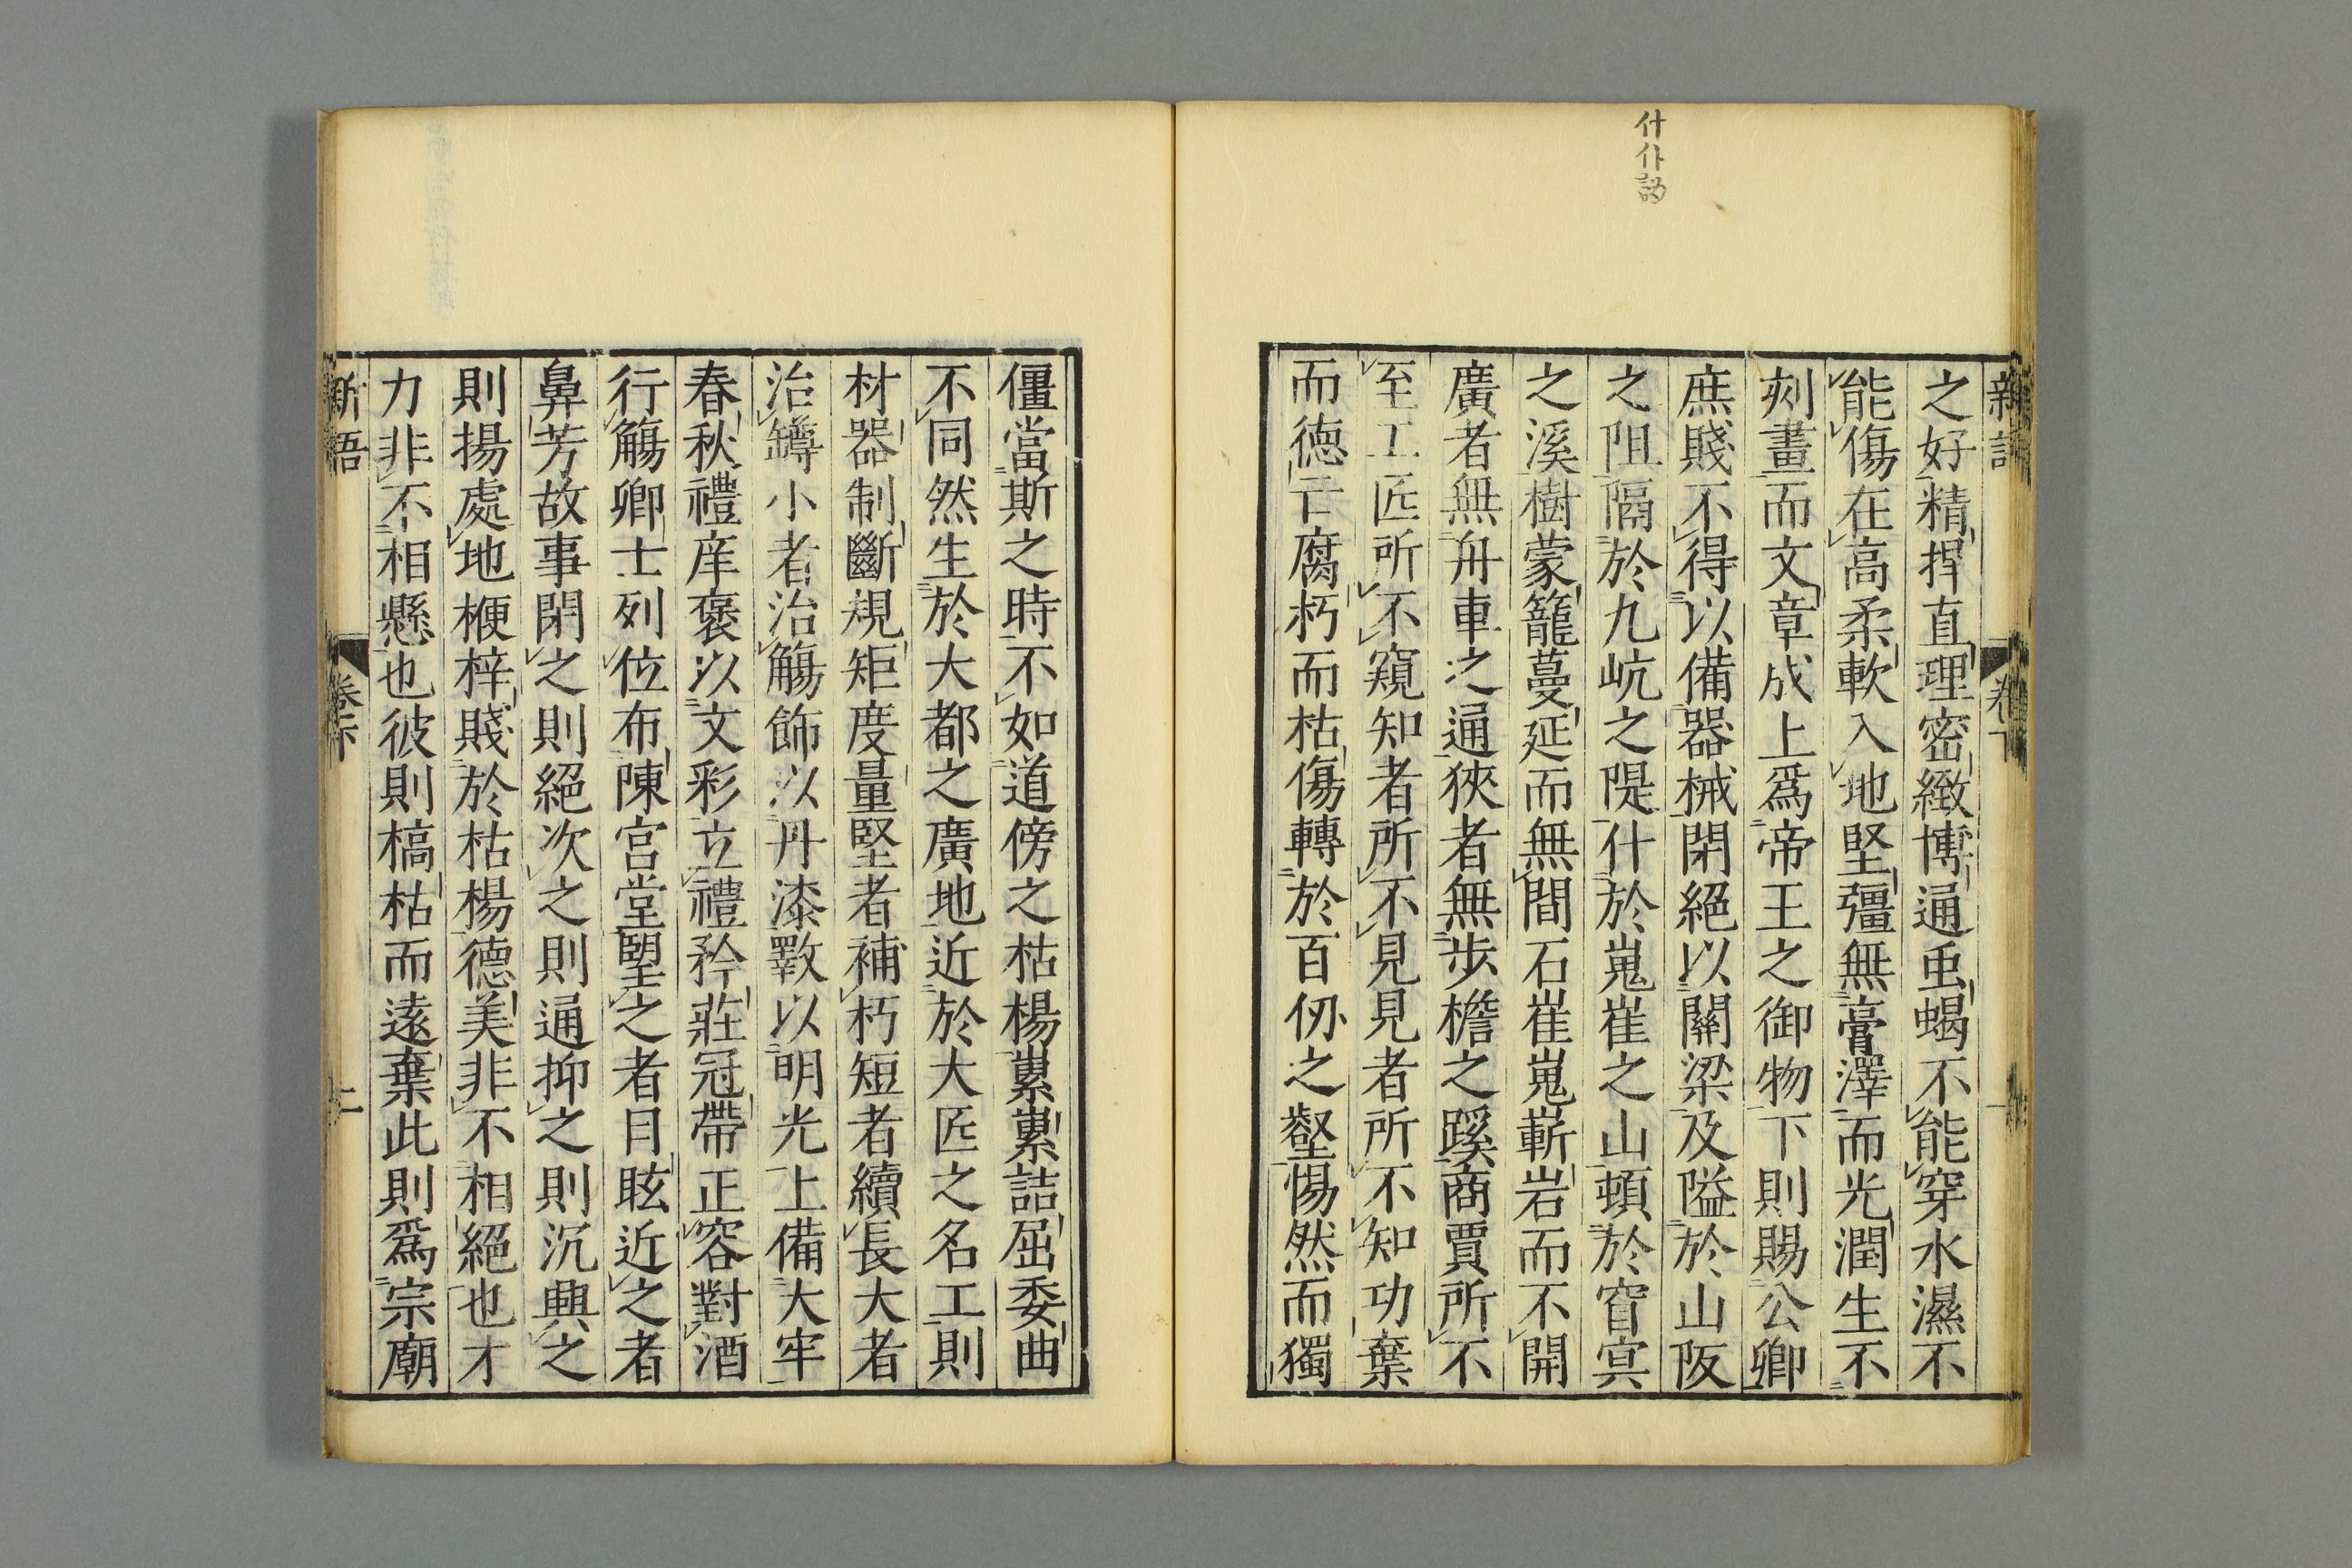 什仆譌
新語
卷下
之好精捍直理密緻博通虫蝎不能穿水濕不
能傷在高柔軟入地堅彊無膏澤而光潤生不
刻畫而文章成上爲帝王之御物下則賜公卿
庶賤不得以備器械閑絕以關梁及隘於山阪
之阻隔於九㟁之隄什於嵬崔之山頓於窅冥
之溪樹蒙籠蔓延而無間石崔嵬嶄岩而不開
廣者無舟車之通狹者無步檐之蹊商賈所不
至工匠所不窺知者所不見見者所不知功棄
而德亡腐朽而枯傷轉於百仞之壑惕然而獨
僵當斯之時不如道傍之枯楊㒍㒍詰屈委曲
不同然生於大都之廣地近於大匠之名工則
材器制斷規矩度量堅者補朽短者續長大者
治罇小者治觴飾以丹漆斁以明光上備大牢
春秋禮庠褒以文彩立禮矜莊冠帶正容對酒
行觴卿士列位布陳宫堂望之者目眩近之者
鼻芳故事閑之則絕次之則通抑之則沉興之
則揚處地楩梓賤於枯楊德美非不相絕也才
力非不相懸也彼則槁枯而遠棄此則爲宗廟
新語
卷下
二